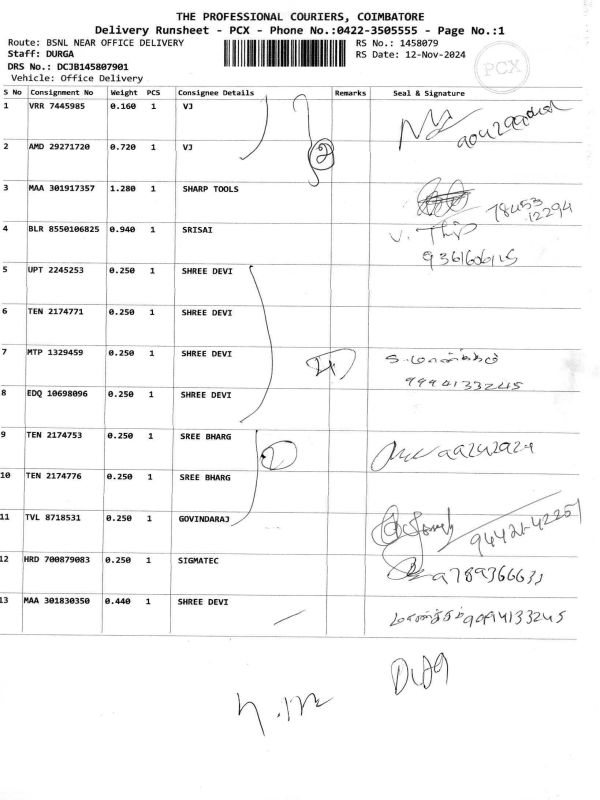 THE PROFESSIONAL COURIERS, COIMBATORE
Delivery Runsheet - PCX - Phone No.:0422-3505555 - Page No.:1
Route: BSNL NEAR OFFICE DELIVERY RS No.: 1458079
Staff: DURGA RS Date: 12-Nov-2024
DRS No.: DCJB145807901 PCX
Vehicle: Office Delivery
S No Consignment No Weight PCS Consignee Details Remarks Seal & Signature
1 VRR 7445985 0.160 1 VJ
2 AMD 29271720 0.720 1 VJ 2
3 MAA 301917357 1.280 1 SHARP TOOLS 78453
12294
4 BLR 8550106825 0.940 1 SRISAI
5 UPT 2245253 0.250 1 SHREE DEVI
6 TEN 2174771 0.250 1 SHREE DEVI
7 MTP 1329459 0.250 1 SHREE DEVI 4
9994133245
8 EDQ 10698096 0.250 1 SHREE DEVI
9 TEN 2174753 0.250 1 SREE BHARG 2
10 TEN 2174776 0.250 1 SREE BHARG
11 TVL 8718531 0.250 1 GOVINDARAJ 94421-42251
12 HRD 700879083 0.250 1 SIGMATEC 9789366631
13 MAA 301830350 0.440 1 SHREE DEVI